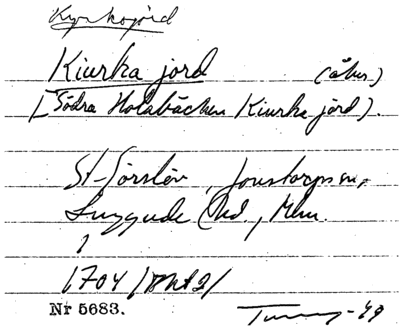 Kyrkojord
Kiurka jord (åker)
[Södra Holabäcken Kiurka jord).
St-Görslöv, Jonstorps sn,
Luggude hd., Mlm.
1
1704
Nr 5683. -49